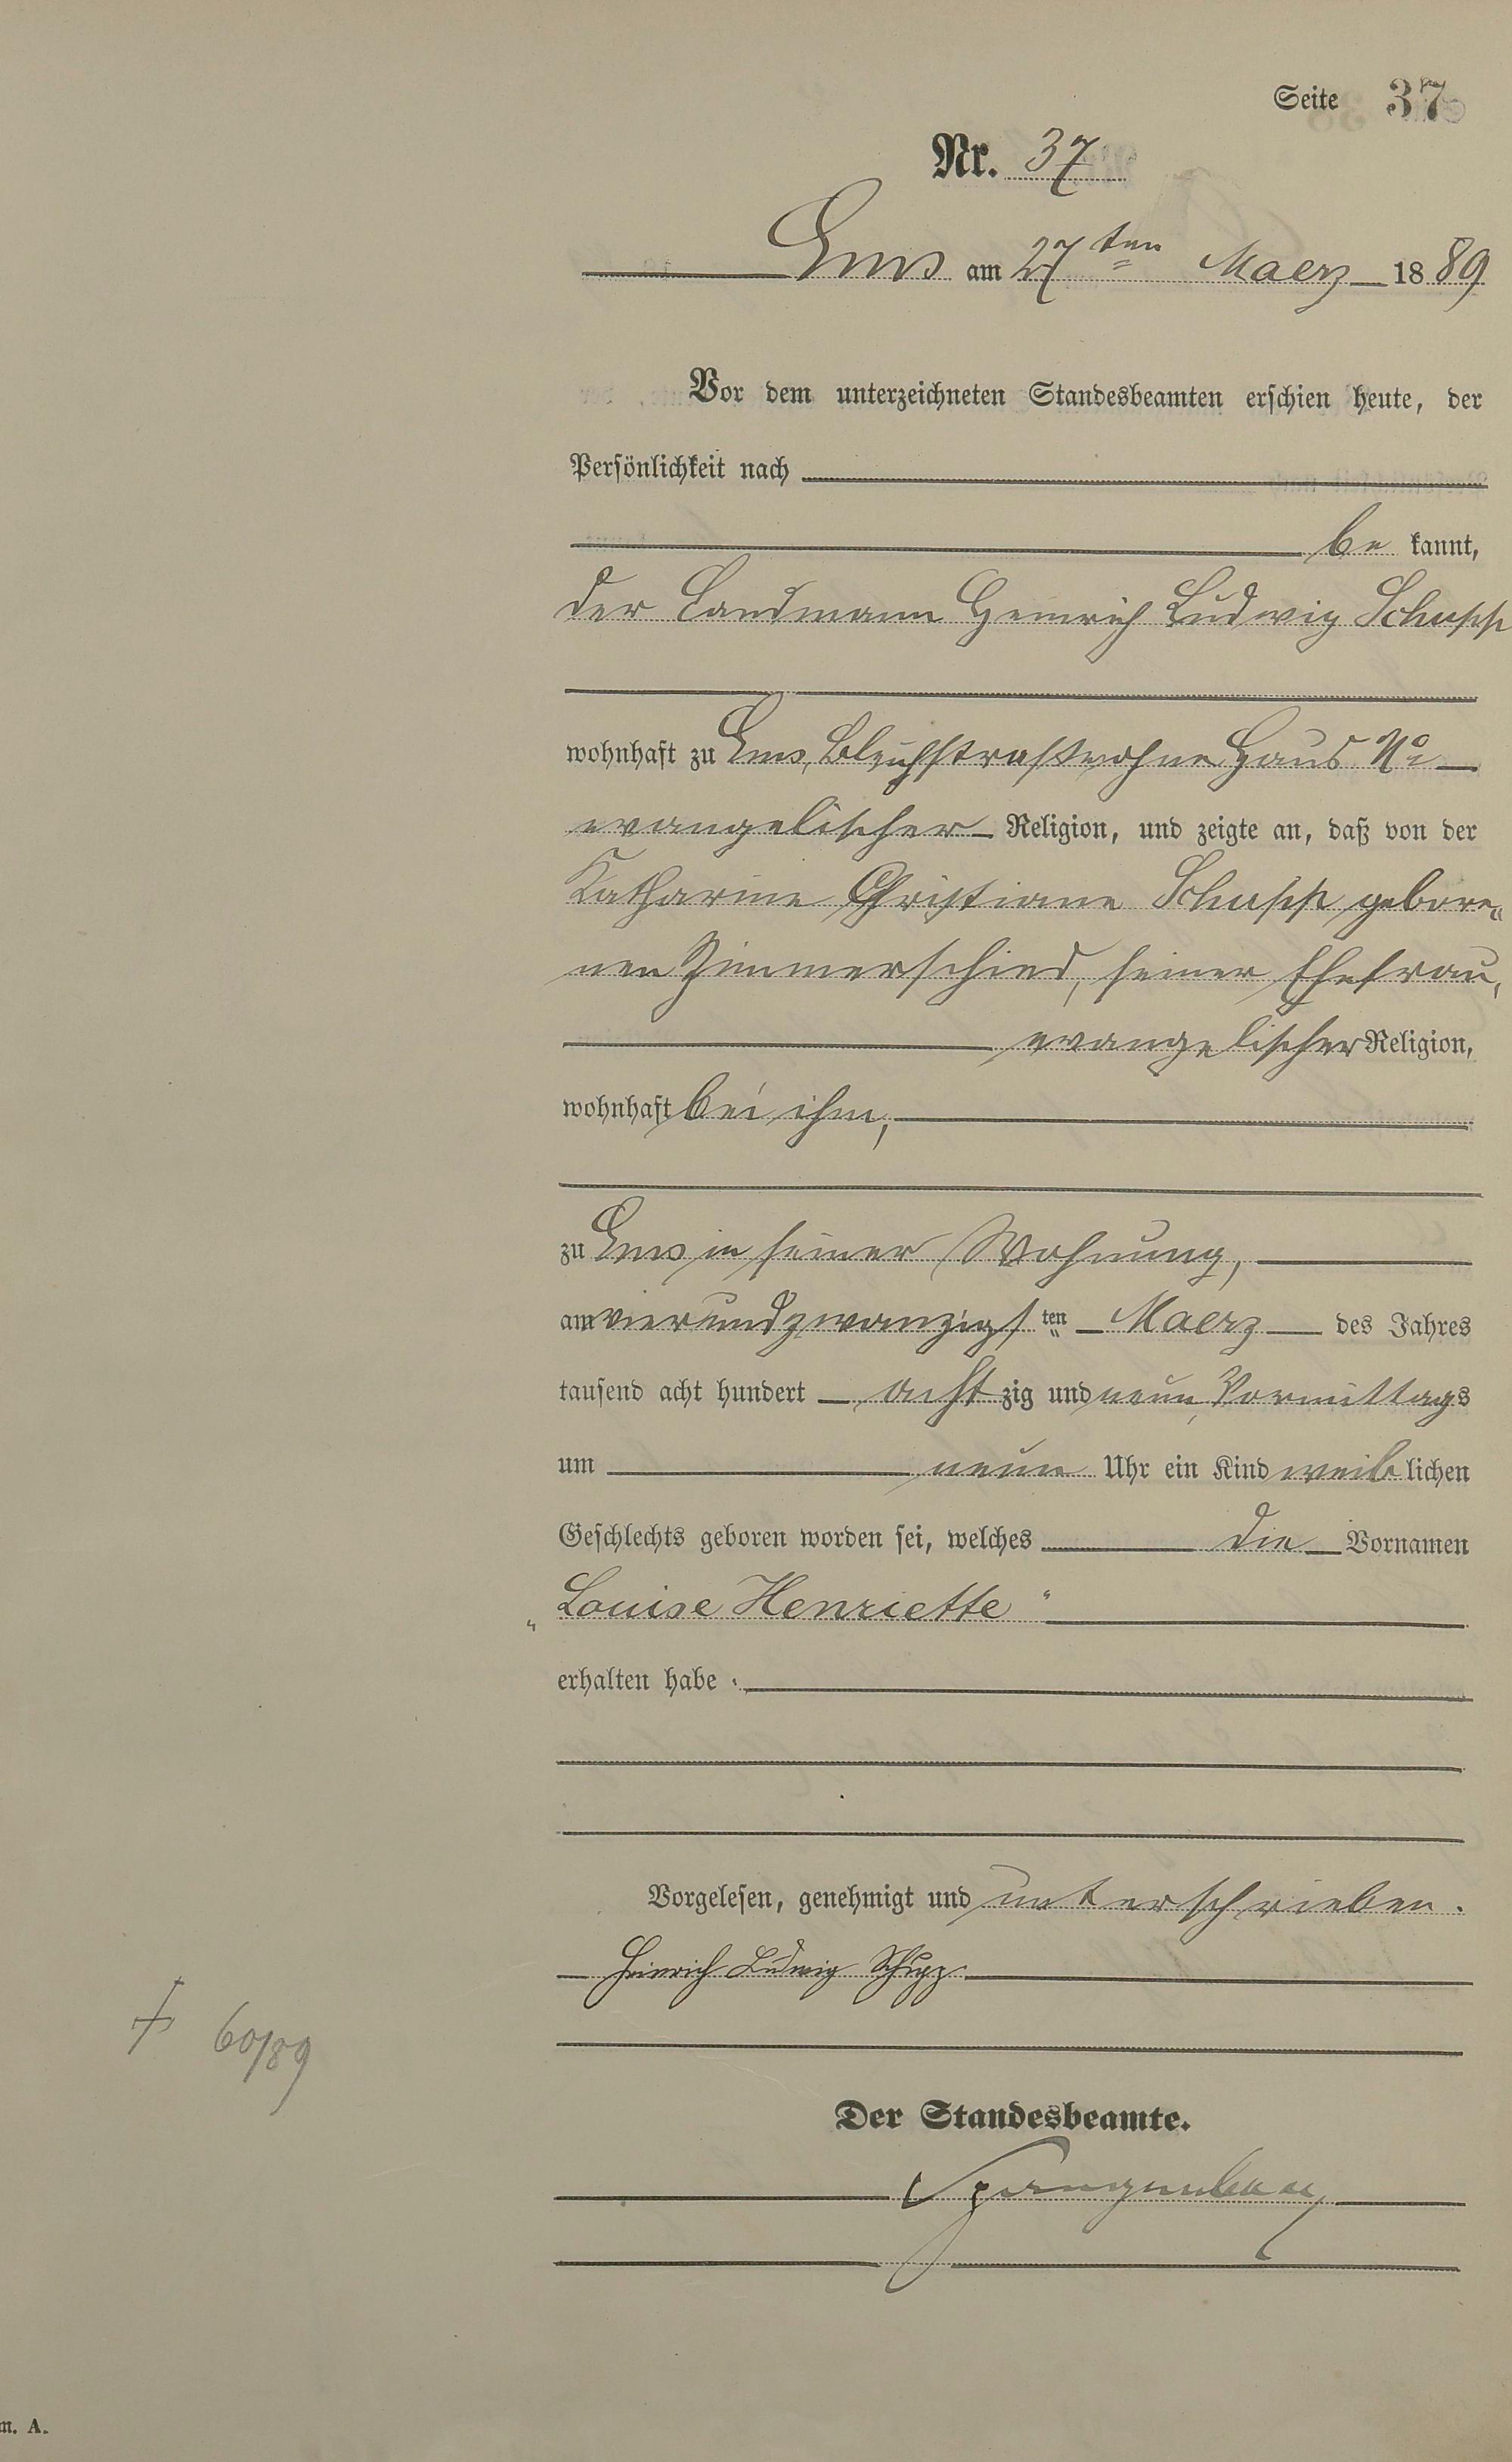 Seite 37
Nr. 37
Ems am 27ten Maerz 1889
Vor dem unterzeichneten Standesbeamten erschien heute, der
Persönlichkeit nach
be kannt,
der Landmann Heinrich Ludwig Schupp
wohnhaft zu Ems, Bleichstraße ohne Haus No
evangelischer Religion, und zeigte an, daß von der
Katharine Christiane Schupp gebore„
nen Zimmerschied, seiner Ehefrau,
evangelischer Religion,
wohnhaft bei ihm,
zu Ems in seiner Wohnung,
am vierundzwanzigsten Maerz des Jahres
tausend acht hundert achtzig und neun, Vormittags
um neun Uhr ein Kind weiblichen
Geschlechts geboren worden sei, welches die Vornamen
„Louise Henriette“
erhalten habe.
Vorgelesen, genehmigt und unterschrieben.
Heinrich Ludwig Schupp
† 60/89
Der Standesbeamte.
m. A.